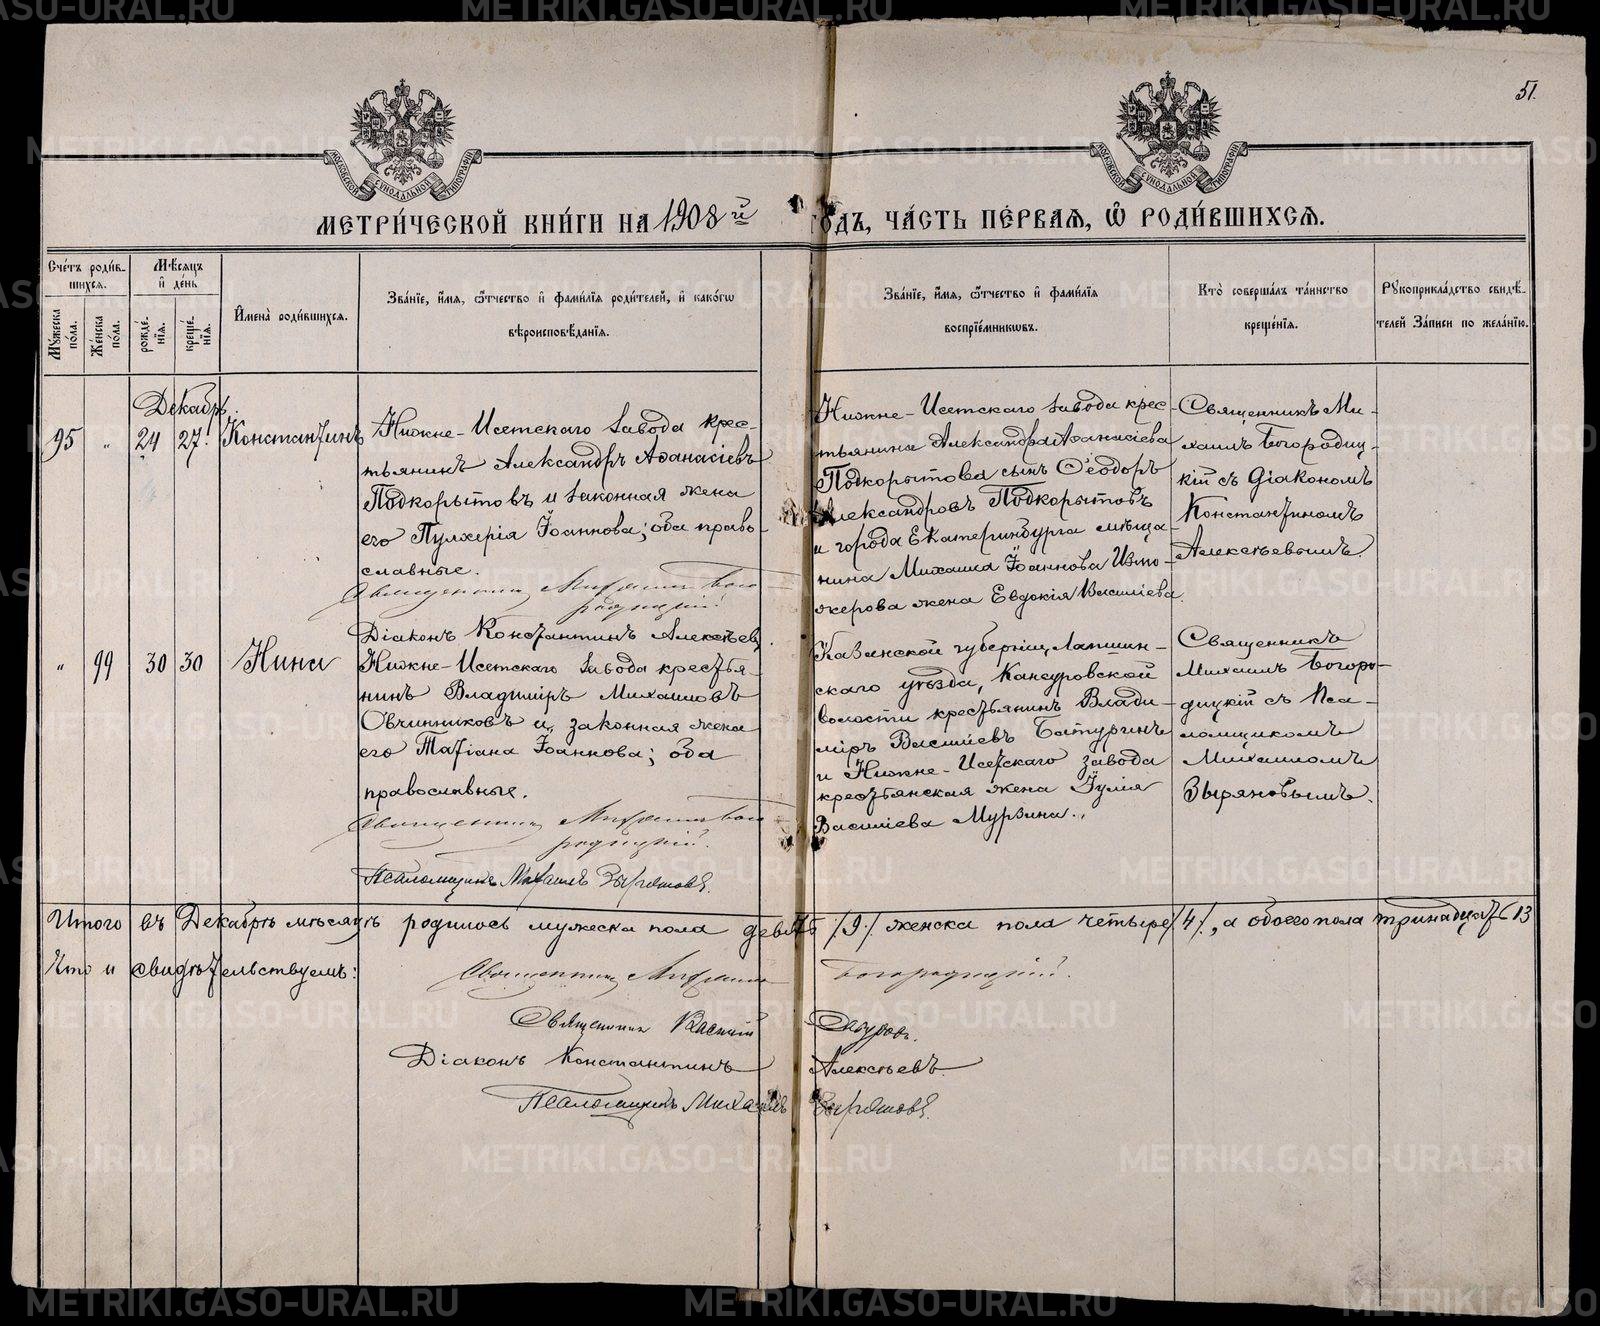 51.
МОСКОВСКОЙ СѴНОДАЛЬНОЙ ТИПОГРАФІИ
МОСКОВСКОЙ СѴНОДАЛЬНОЙ ТИПОГРАФІИ
МЕТРИ́ЧЕСКОЙ КНИ́ГИ НА 1908й ГОДЪ, ЧА́СТЬ ПЕ́РВАЯ, Ѡ РОДИ́ВШИХСЯ.
Счетъ родив-
шихся.
Мужеска пола.
Женска пола.
Мѣсяцъ
и день
рожде́нія.
креще́нія.
Имена родившихся.
Званіе, имя, ѿчество и фамилія родителей, и какогѡ
вѣроисповѣданія.
Званіе, имя, ѿчество и фамилія
воспріемникѡвъ.
Кто совершалъ таинство
крещенія.
Рукоприкладство свидѣ-
телей записи по желанію.
Декабрь.
95 „ 24 27. Константинъ
Нижне-Исетскаго завода крес-
тьянинъ Александръ Аѳанасіевъ
Подкорытовъ и законная жена
его Пулхерія Іоаннова; оба право-
славные.
Священникъ Михаилъ Бого-
родицкій.
Діаконъ Константинъ Алексѣевъ
Нижне-Исетскаго завода крес-
тьянина Александра Аѳанасіева
Подкорытова сынъ Ѳеодоръ
Александровъ Подкорытовъ
и города Екатеринбурга мѣща-
нина Михаила Іоаннова Измо-
жерова жена Евдокія Василіева.
Священникъ Ми-
хаилъ Богородиц-
кій съ Діакономъ
Константиномъ
Алексѣевымъ.
„ 99 30 30 Нина
Нижне-Исетскаго завода крестья-
нинъ Владиміръ Михаиловъ
Овчинниковъ и законная жена
его Татіана Іоаннова; оба
православные.
Священникъ Михаилъ Бого-
родицкій.
Псаломщикъ Михаилъ Зыряновъ.
Казанской губерніи, Лаишин-
скаго уѣзда, Кансуровской
волости крестьянинъ Влади-
міръ Василіевъ Батуринъ
и Нижне-Исетскаго завода
крестьянская жена Іулія
Василіева Мурзина.
Священникъ
Михаилъ Богоро-
дицкій съ Пса-
ломщикомъ
Михаиломъ
Зыряновымъ.
Итого въ Декабрѣ мѣсяцѣ родилось мужеска пола девять /9/. женска пола четыре /4/., а обоего пола тринадцать 13
Что и свидѣтельствуемъ:
Священникъ Михаилъ Богородицкій.
Священникъ Василій
Діаконъ Константинъ Алексѣевъ.
Псаломщикъ Михаилъ Зыряновъ.
METRIKI.GASO-URAL.RU